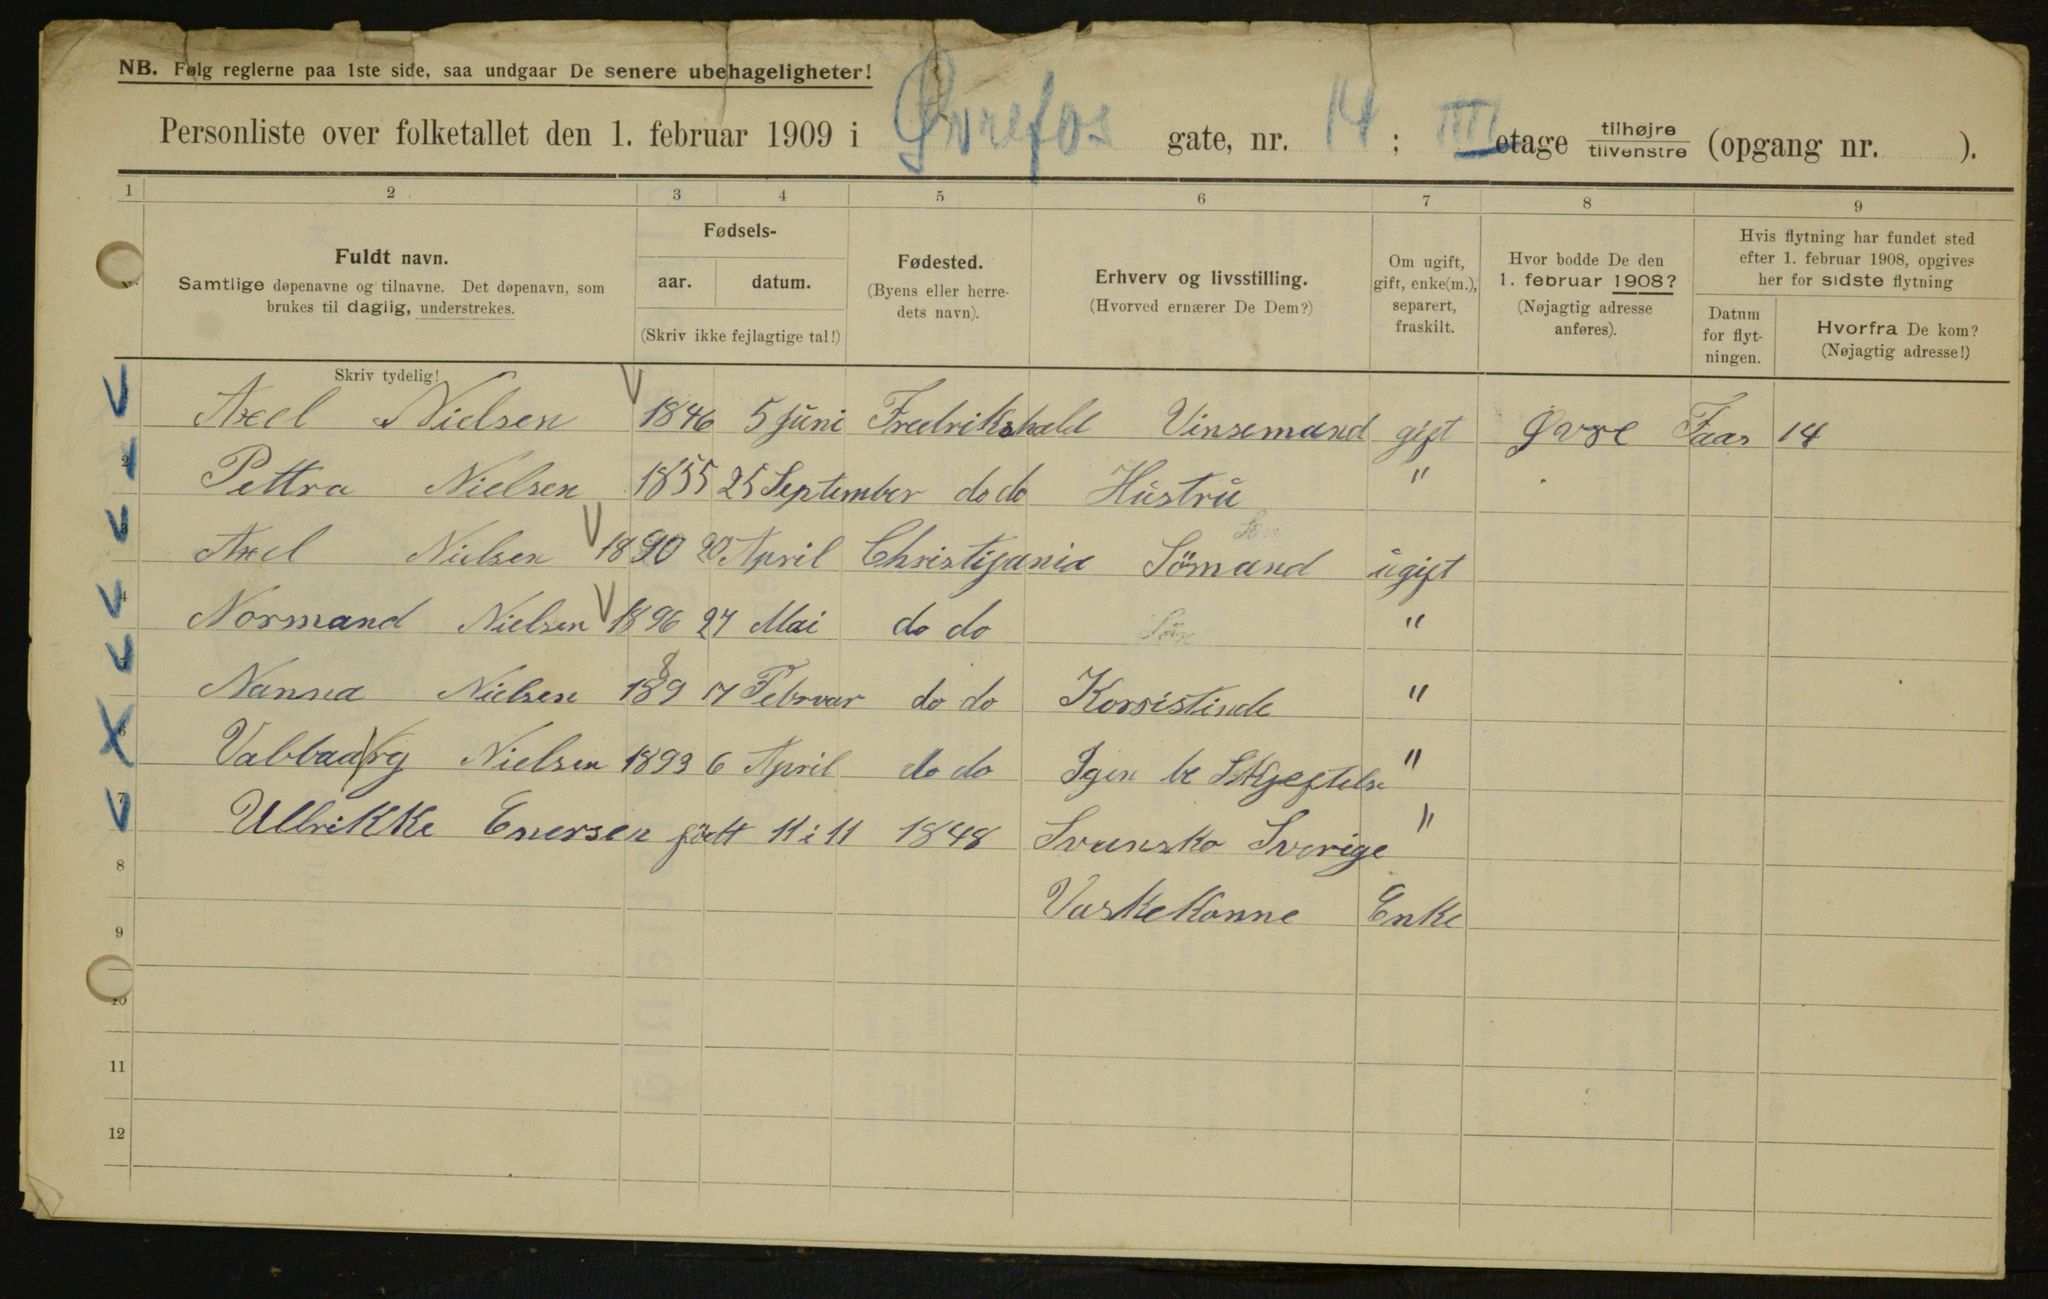 NB. Følg reglerne paa 1ste side, saa undgaar De senere ubehageligheter!
Personliste over folketallet den 1. februar 1909 i Øvrefos gate, nr. 14 ; III etage tilhøjre tilvenstre (opgang nr. ).
1 2 3 4 5 6 7 8 9
Fuldt navn.
Samtlige døpenavne og tilnavne. Det døpenavn, som
brukes til daglig, understrekes.
Skriv tydelig!
Fødsels-
aar. datum.
(Skriv ikke fejlagtige tal!)
Fødested.
(Byens eller herre-
dets navn).
Erhverv og livsstilling.
(Hvorved ernærer De Dem?)
Om ugift,
gift, enke(m.),
separert,
fraskilt.
Hvor bodde De den
1. februar 1908?
(Nøjagtig adresse
anføres).
Hvis flytning har fundet sted
efter 1. februar 1908, opgives
her for sidste flytning
Datum
for flyt-
ningen.
Hvorfra De kom?
(Nøjagtig adresse!)
Axel Nielsen 1846 5 juni Fredrikshald Vinsemand gift Øvre Faas 14
2 Pettra Nielsen 1855 25 September do do Hustru "
3 Axel Nielsen 1890 20 April Christijania Sömand ugift
4 Normand Nielsen 1896 27 Mai do do Søn "
5 Nanna Nielsen 1889 17 Februar do do Korsistinde "
6 Valbaarg Nielsen 1893 6 April do do Igen be Skjeftelse "
7 Ullrikke Enersen født 11 i 11 1848 Svenska Sverige "
8 Vaskekonne Enke
9
10
11
12